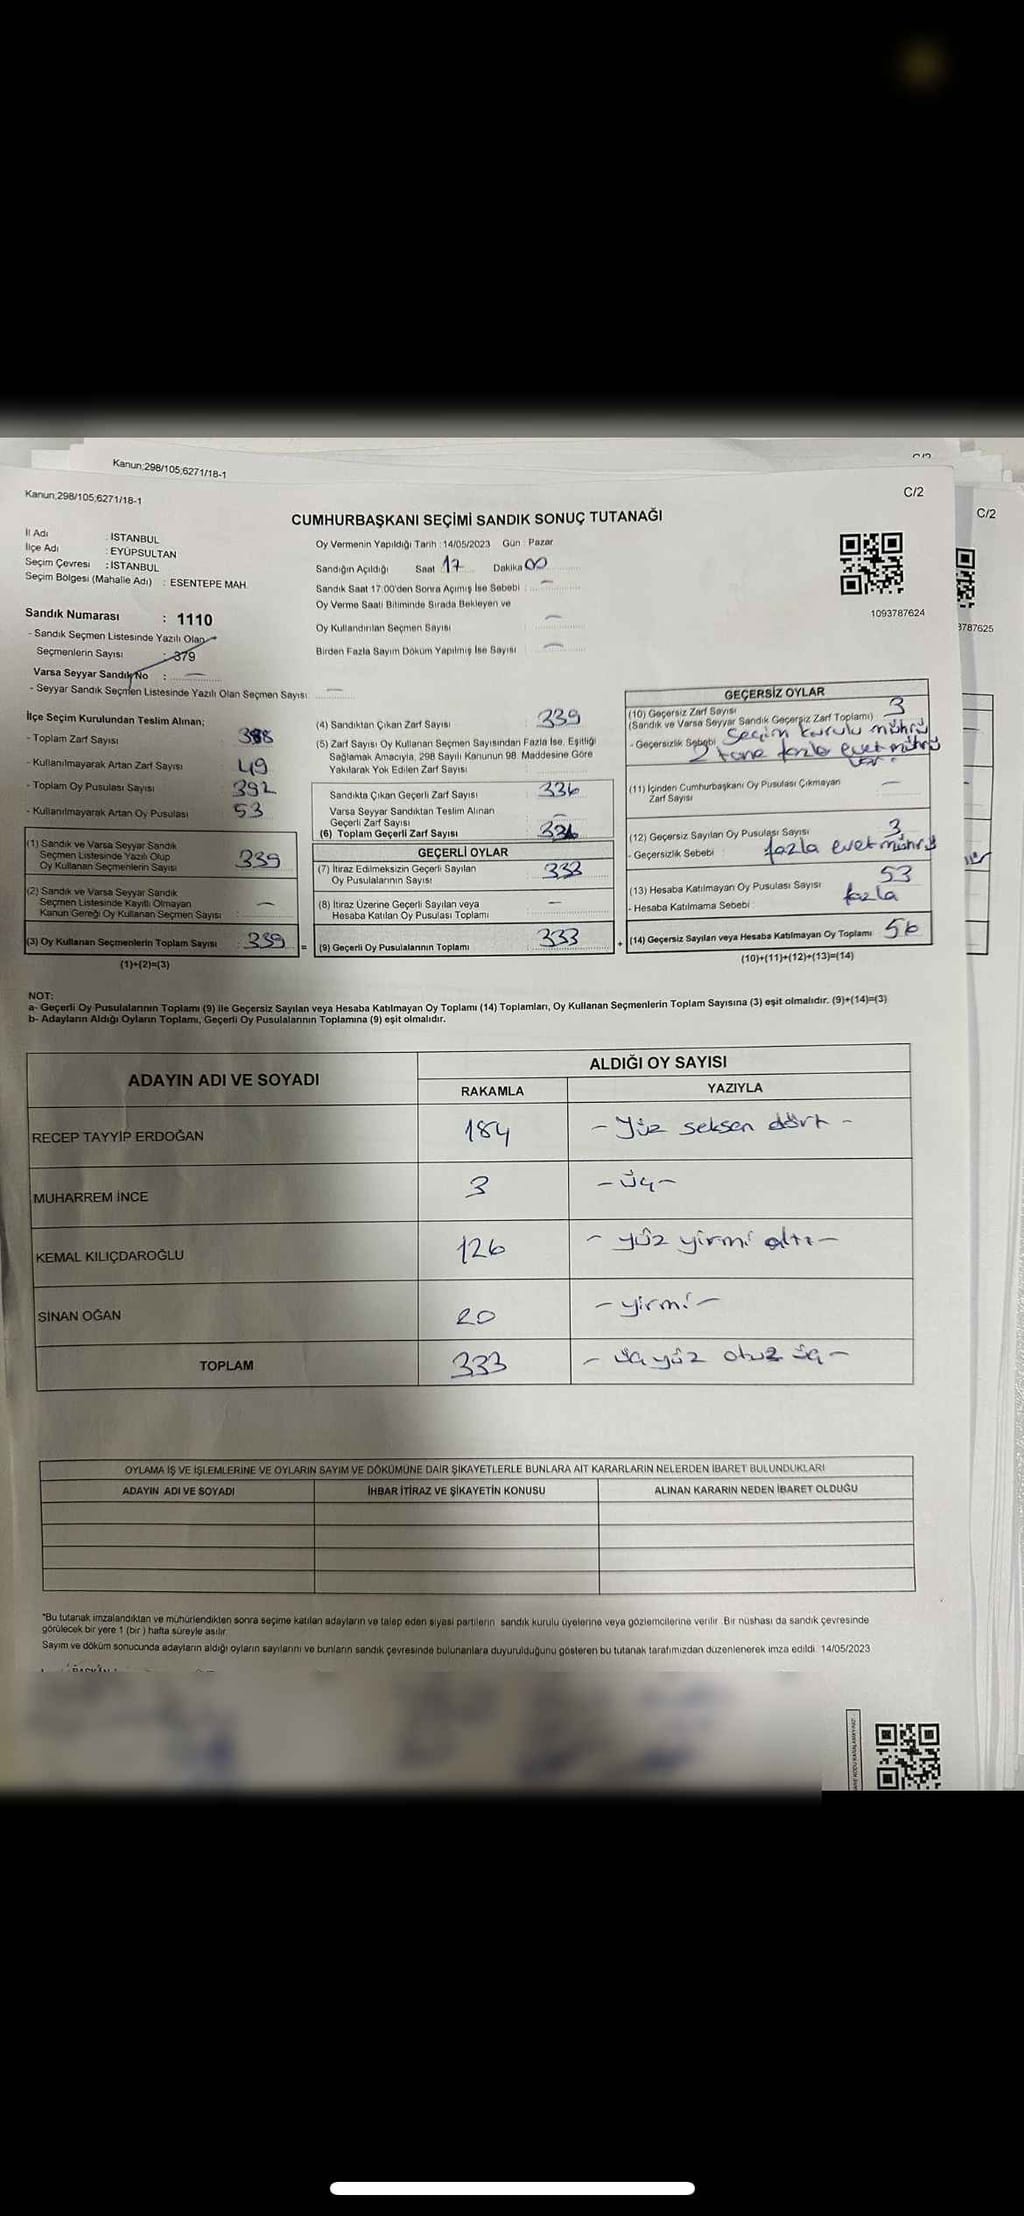 Kanun;298/105,6271/18-1
Kanun;298/105,6271/18-1
C/2
C/2
CUMHURBAŞKANI SEÇİMİ SANDIK SONUÇ TUTANAĞI
İl Adı : İSTANBUL
İlçe Adı : EYÜPSULTAN
Seçim Çevresi : İSTANBUL
Seçim Bölgesi (Mahalle Adı) : ESENTEPE MAH.
Sandık Numarası : 1110
- Sandık Seçmen Listesinde Yazılı Olan
Seçmenlerin Sayısı : 379
Varsa Seyyar Sandık No :
- Seyyar Sandık Seçmen Listesinde Yazılı Olan Seçmen Sayısı
Oy Vermenin Yapıldığı Tarih :14/05/2023 Gün : Pazar
Sandığın Açıldığı Saat 17 Dakika 00
Sandık Saat 17:00'den Sonra Açımış İse Sebebi :
Oy Verme Saati Bitiminde Sırada Bekleyen ve
Oy Kullandırılan Seçmen Sayısı
Birden Fazla Sayım Döküm Yapılmış İse Sayısı
1093787624
3787625
İlçe Seçim Kurulundan Teslim Alınan;
- Toplam Zarf Sayısı 388
- Kullanılmayarak Artan Zarf Sayısı 49
- Toplam Oy Pusulası Sayısı 392
- Kullanılmayarak Artan Oy Pusulası 53
(1) Sandık ve Varsa Seyyar Sandık
Seçmen Listesinde Yazılı Olup
Oy Kullanan Seçmenlerin Sayısı 339
(2) Sandık ve Varsa Seyyar Sandık
Seçmen Listesinde Kayıtlı Olmayan
Kanun Gereği Oy Kullanan Seçmen Sayısı : -
(3) Oy Kullanan Seçmenlerin Toplam Sayısı : 339 =
(1)+(2)=(3)
(4) Sandıktan Çıkan Zarf Sayısı : 339
(5) Zarf Sayısı Oy Kullanan Seçmen Sayısından Fazla İse, Eşitliği
Sağlamak Amacıyla, 298 Sayılı Kanunun 98. Maddesine Göre
Yakılarak Yok Edilen Zarf Sayısı
Sandıkta Çıkan Geçerli Zarf Sayısı 336
Varsa Seyyar Sandıktan Teslim Alınan
Geçerli Zarf Sayısı -
(6) Toplam Geçerli Zarf Sayısı 336
GEÇERLİ OYLAR
(7) İtiraz Edilmeksizin Geçerli Sayılan
Oy Pusulalarının Sayısı 333
(8) İtiraz Üzerine Geçerli Sayılan veya
Hesaba Katılan Oy Pusulası Toplamı -
(9) Geçerli Oy Pusulalarının Toplamı 333 +
GEÇERSİZ OYLAR
(10) Geçersiz Zarf Sayısı 3
(Sandık ve Varsa Seyyar Sandık Geçersiz Zarf Toplamı)
- Geçersizlik Sebebi Seçim kurulu mührü
2 tane fazla evet mührü
var.
(11) İçinden Cumhurbaşkanı Oy Pusulası Çıkmayan
Zarf Sayısı -
(12) Geçersiz Sayılan Oy Pusulası Sayısı 3
- Geçersizlik Sebebi : fazla evet mührü
(13) Hesaba Katılmayan Oy Pusulası Sayısı 53
- Hesaba Katılmama Sebebi : fazla
(14) Geçersiz Sayılan veya Hesaba Katılmayan Oy Toplamı 56
(10)+(11)+(12)+(13)=(14)
NOT:
a- Geçerli Oy Pusulalarının Toplamı (9) ile Geçersiz Sayılan veya Hesaba Katılmayan Oy Toplamı (14) Toplamları, Oy Kullanan Seçmenlerin Toplam Sayısına (3) eşit olmalıdır. (9)+(14)=(3)
b- Adayların Aldığı Oyların Toplamı, Geçerli Oy Pusulalarının Toplamına (9) eşit olmalıdır.
ADAYIN ADI VE SOYADI
ALDIĞI OY SAYISI
RAKAMLA YAZIYLA
RECEP TAYYİP ERDOĞAN 184 - Yüz seksen dört -
MUHARREM İNCE 3 - üç -
KEMAL KILIÇDAROĞLU 126 - yüz yirmi altı -
SİNAN OĞAN 20 - yirmi -
TOPLAM 333 - üç yüz otuz üç -
OYLAMA İŞ VE İŞLEMLERİNE VE OYLARIN SAYIM VE DÖKÜMÜNE DAİR ŞİKAYETLERLE BUNLARA AİT KARARLARIN NELERDEN İBARET BULUNDUKLARI
ADAYIN ADI VE SOYADI İHBAR İTİRAZ VE ŞİKAYETİN KONUSU ALINAN KARARIN NEDEN İBARET OLDUĞU
*Bu tutanak imzalandıktan ve mühürlendikten sonra seçime katılan adayların ve talep eden siyasi partilerin sandık kurulu üyelerine veya gözlemcilerine verilir. Bir nüshası da sandık çevresinde
görülecek bir yere 1 (bir) hafta süreyle asılır.
Sayım ve döküm sonucunda adayların aldığı oyların sayılarını ve bunların sandık çevresinde bulunanlara duyurulduğunu gösteren bu tutanak tarafımızdan düzenlenerek imza edildi. 14/05/2023